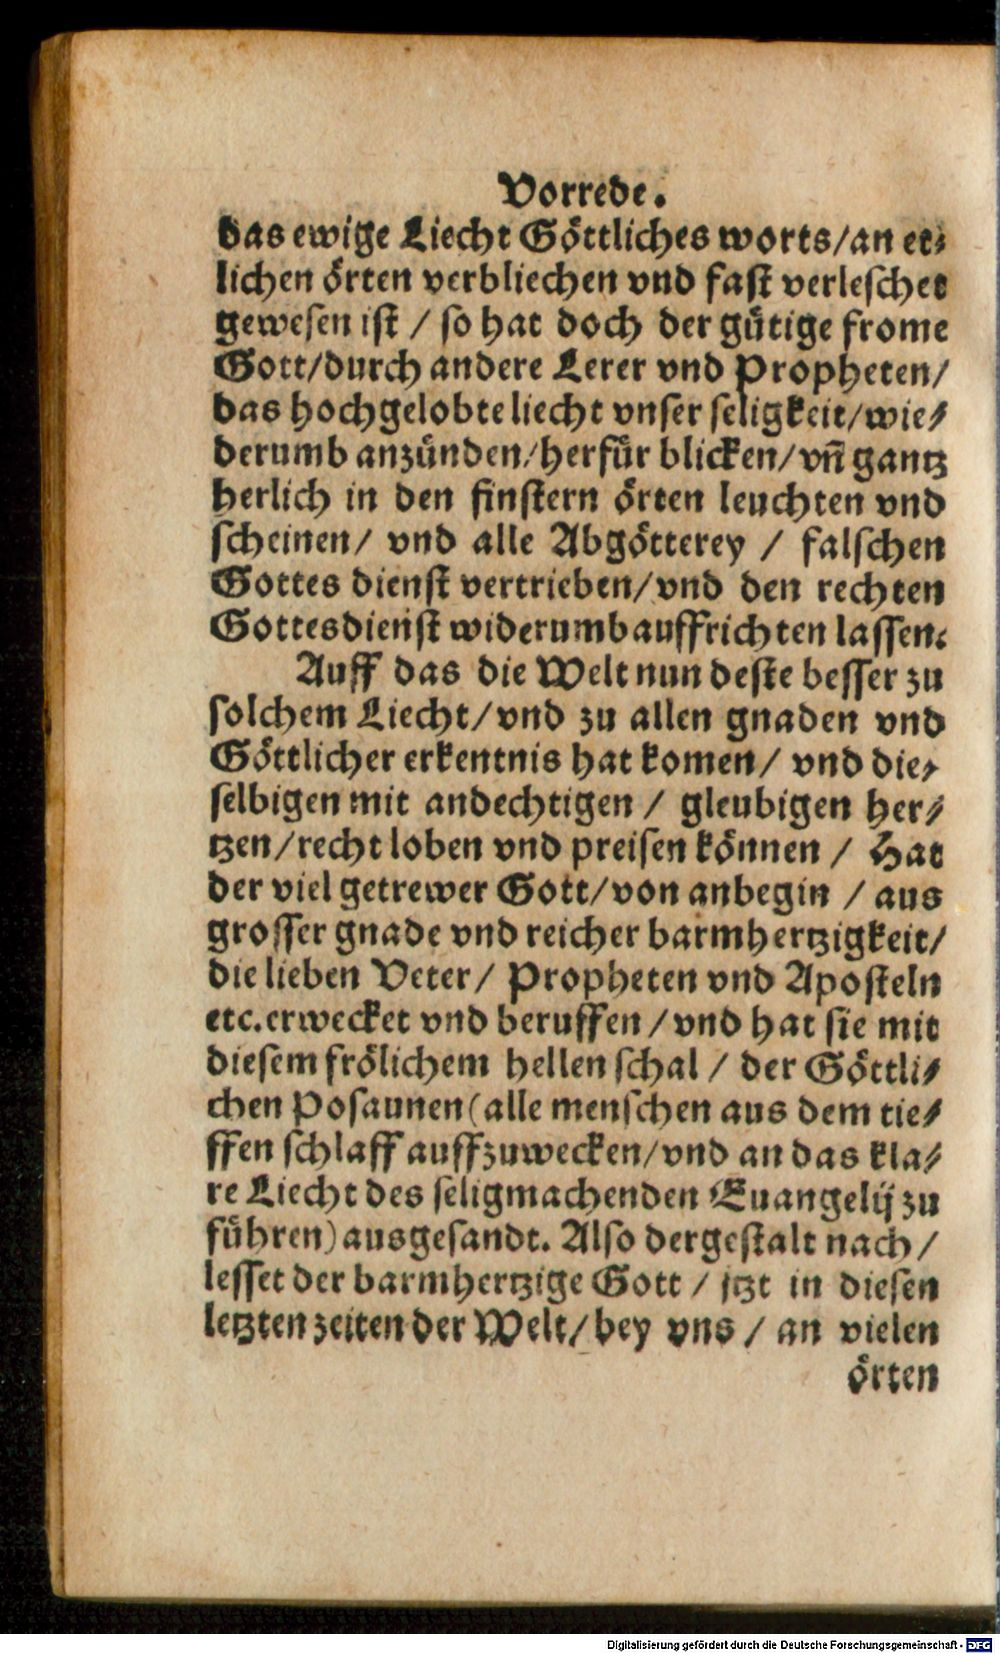 Vorrede.
das ewige Liecht Göttliches worts/an et-
lichen örten verbliechen vnd fast verleschet
gewesen ist / so hat doch der gütige frome
Gott/durch andere Lerer vnd Propheten/
das hochgelobte liecht vnser seligkeit/wie-
derumb anzünden/herfür blicken/vn̄ gantz
herlich in den finstern örten leuchten vnd
scheinen/ vnd alle Abgötterey / falschen
Gottes dienst vertrieben/vnd den rechten
Gottesdienst widerumb auffrichten lassen.
Auff das die Welt nun deste besser zu
solchem Liecht/vnd zu allen gnaden vnd
Göttlicher erkentnis hat komen/ vnd die-
selbigen mit andechtigen / gleubigen her-
tzen/recht loben vnd preisen können / Hat
der viel getrewer Gott/von anbegin / aus
grosser gnade vnd reicher barmhertzigkeit/
die lieben Veter/ Propheten vnd Aposteln
etc.erwecket vnd beruffen /vnd hat sie mit
diesem frölichem hellen schal / der Göttli-
chen Posaunen(alle menschen aus dem tie-
ffen schlaff auffzuwecken/vnd an das kla-
re Liecht des seligmachenden Euangelij zu
führen)ausgesandt. Also dergestalt nach/
lesset der barmhertzige Gott / jtzt in diesen
letzten zeiten der Welt/bey vns / an vielen
örten
Digitalisierung gefördert durch die Deutsche Forschungsgemeinschaft - DFG